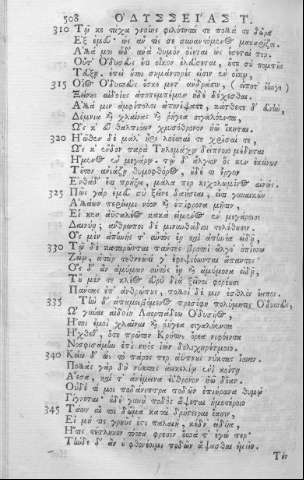 508 ΟΔΥΣΣΕΙΑΣ Τ.
310 Τῷ κε τάχα γνοίης φιλότητά τε πολλά τε δῶρα
Ἐξ ἐμεῦ, ὡς ἄν τίς σε συναντόμενος μακαρίζοι.
Ἀλλά μοι ὧδ' ἀνὰ θυμὸν ὀίεται ὡς ἔσεταί περ.
Οὔτ' Ὀδυσεὺς ἔτι οἶκον ἐλεύσεται, οὔτε σὺ πομπῆς
Τεύξῃ, ἐπεὶ οὔτι σημάντορές εἰσιν ἐν οἴκῳ,
315 Οἷος Ὀδυσσεὺς ἔσκε μετ' ἀνδράσιν, (εἴποτ' ἔην γε)
Ξείνους αἰδοίους ἀποπεμπέμεν ἠδὲ δέχεσθαι.
Ἀλλά μιν ἀμφίπολοι ἀπονίψατε, κάτθετε δ' εὐνὴν,
Δέμνια καὶ χλαίνας καὶ ῥήγεα σιγαλόεντα,
Ὥς κ' εὖ θαλπιόων χρυσόθρονον ἠῶ ἵκηται.
320 Ἠῶθεν δὲ μάλ' ἦρι λοέσσαι τε χρῖσαί τε,
Ὥς κ' ἔνδον παρὰ Τηλεμάχῳ δείπνοιο μέδηται
Ἥμενος ἐν μεγάρῳ. τῷ δ' ἄλγιον ὅς κεν ἐκείνων
Τοῦτον ἀνιάζῃ θυμοφθόρος, οὐδέ τι ἔργον
Ἐνθάδ' ἔτι πρήξει, μάλα περ κεχολωμένος αἰνῶς.
325 Πῶς γὰρ ἐμεῦ σὺ ξεῖνε δαήσεαι, εἴτι γυναικῶν
Ἀλλάων περίειμι νόον καὶ ἐπίφρονα μῆτιν,
Εἴ κεν ἀυσταλέος κακὰ εἱμένος ἐν μεγάροισι
Δαινύῃ, ἄνθρωποι δὲ μινυνθάδιοι τελέθουσιν.
Ὃς μὲν ἀπηνὴς αὐτὸς ἔῃ καὶ ἀπηνέα εἰδῇ,
330 Τῷ δὲ καταρῶνται πάντες βροτοὶ ἄλγε' ὀπίσσω
Ζωῷ, ἀτὰρ τεθνεῶτί γ' ἐφεψιόωνται ἅπαντες.
Ὃς δ' ἂν ἀμύμων αὐτὸς ἔῃ καὶ ἀμύμονα εἰδῇ,
Τοῦ μέν τε κλέος εὐρὺ διὰ ξεῖνοι φορέουσι
Πάντας ἐπ' ἀνθρώπους, πολλοί δέ μιν ἐσθλὸν ἔειπον.
335 Τὴν δ' ἀπαμειβόμενος προσέφη πολύμητις Ὀδυσσεὺς,
Ὦ γύναι αἰδοίη Λαερτιάδεω Ὀδυσῆος,
Ἤτοι ἐμοὶ χλαῖναι καὶ ῥήγεα σιγαλόεντα
Ἤχθεθ', ὅτε πρῶτον Κρήτης ὄρεα νιφόεντα
Νοσφισάμην ἐπὶ νηὸς ἰὼν δολιχηρέτμοιο.
340 Κείω δ' ὡς τὸ πάρος περ ἀύπνους νύκτας ἴαυον.
Πολλὰς γὰρ δὴ νύκτας ἀεικελίῳ ἐνὶ κοίτῃ
Ἄεσα, καί τ' ἀνέμεινα εὔθρονον ἠῶ δῖαν.
Οὐδέ τί μοι ποδάνιπτρα ποδῶν ἐπιήρανα θυμῷ
Γίγνεται· οὐδὲ γυνὴ ποδὸς ἅψεται ἡμετέροιο
345 Τάων αἵ τοι δῶμα κάτα δρήστειραι ἔασιν,
Εἰ μή τις γρηῦς ἐστι παλαιὴ, κεδν' εἰδυῖα,
Ἥτις τέτληκε τόσα φρεσὶν ὅσσα τ' ἐγώ περ·
Τῇδε δ' ἂν οὐ φθονέοιμι ποδῶν ἅψασθαι ἐμεῖο.
Τὸν